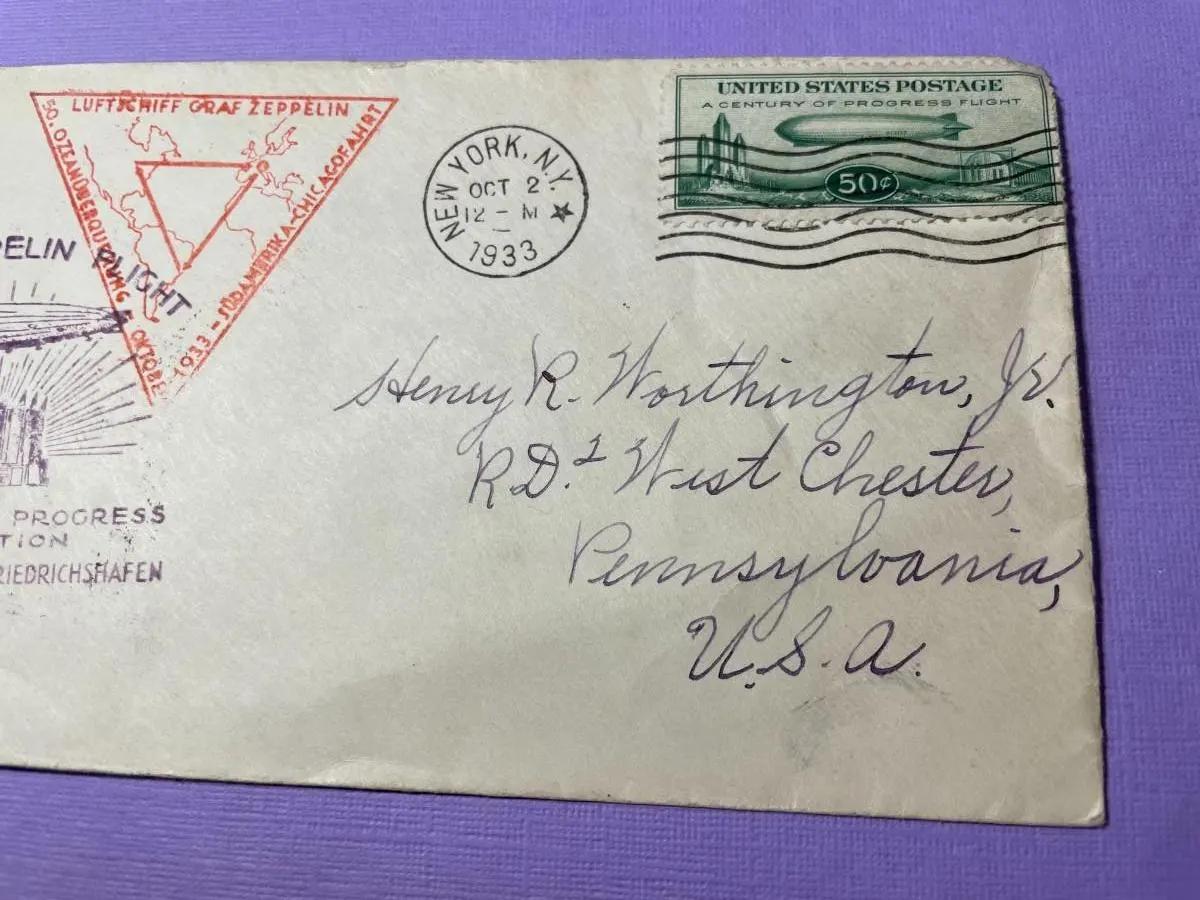 LUFTSCHIFF GRAF ZEPPELIN
50. OZEANÜBERQUERUNG
OKTOBER 1933 - SÜDAMERIKA-CHICAGOFAHRT
FLIGHT
PROGRESS
NEW YORK, N.Y.
OCT 2
12 - M
1933
UNITED STATES POSTAGE
A CENTURY OF PROGRESS FLIGHT
50¢
Henry R. Worthington, Jr.
RD. 1 West Chester,
Pennsylvania,
U.S.A.